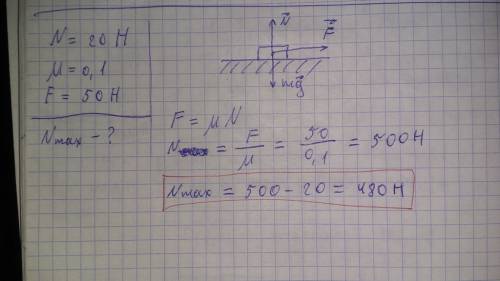 N = 20 Н
μ = 0,1
F = 50 Н
Nmax - ?
N⃗
F⃗
mg⃗
F = μN
N = F/μ = 50/0,1 = 500Н
Nmax = 500 - 20 = 480 Н